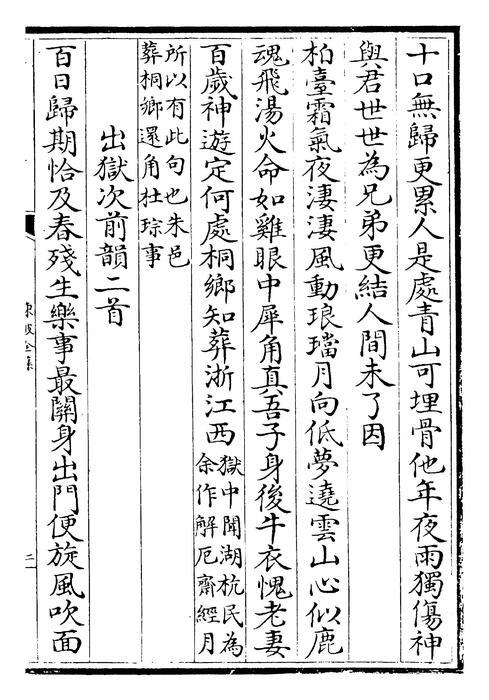 十口無歸更累人是處青山可埋骨他年夜雨獨傷神
與君世世為兄弟更結人間未了因
柏臺霜氣夜淒淒風動琅璫月向低夢遶雲山心似鹿
魂飛湯火命如雞眼中犀角真吾子身後牛衣愧老妻
百歲神遊定何處桐鄉知葬浙江西
獄中聞湖杭民為
余作解厄齋經月
所以有此句也朱邑
葬桐鄉還角杜琮事
出獄次前韻二首
百日歸期恰及春殘生樂事最關身出門便旋風吹面
東坡全集